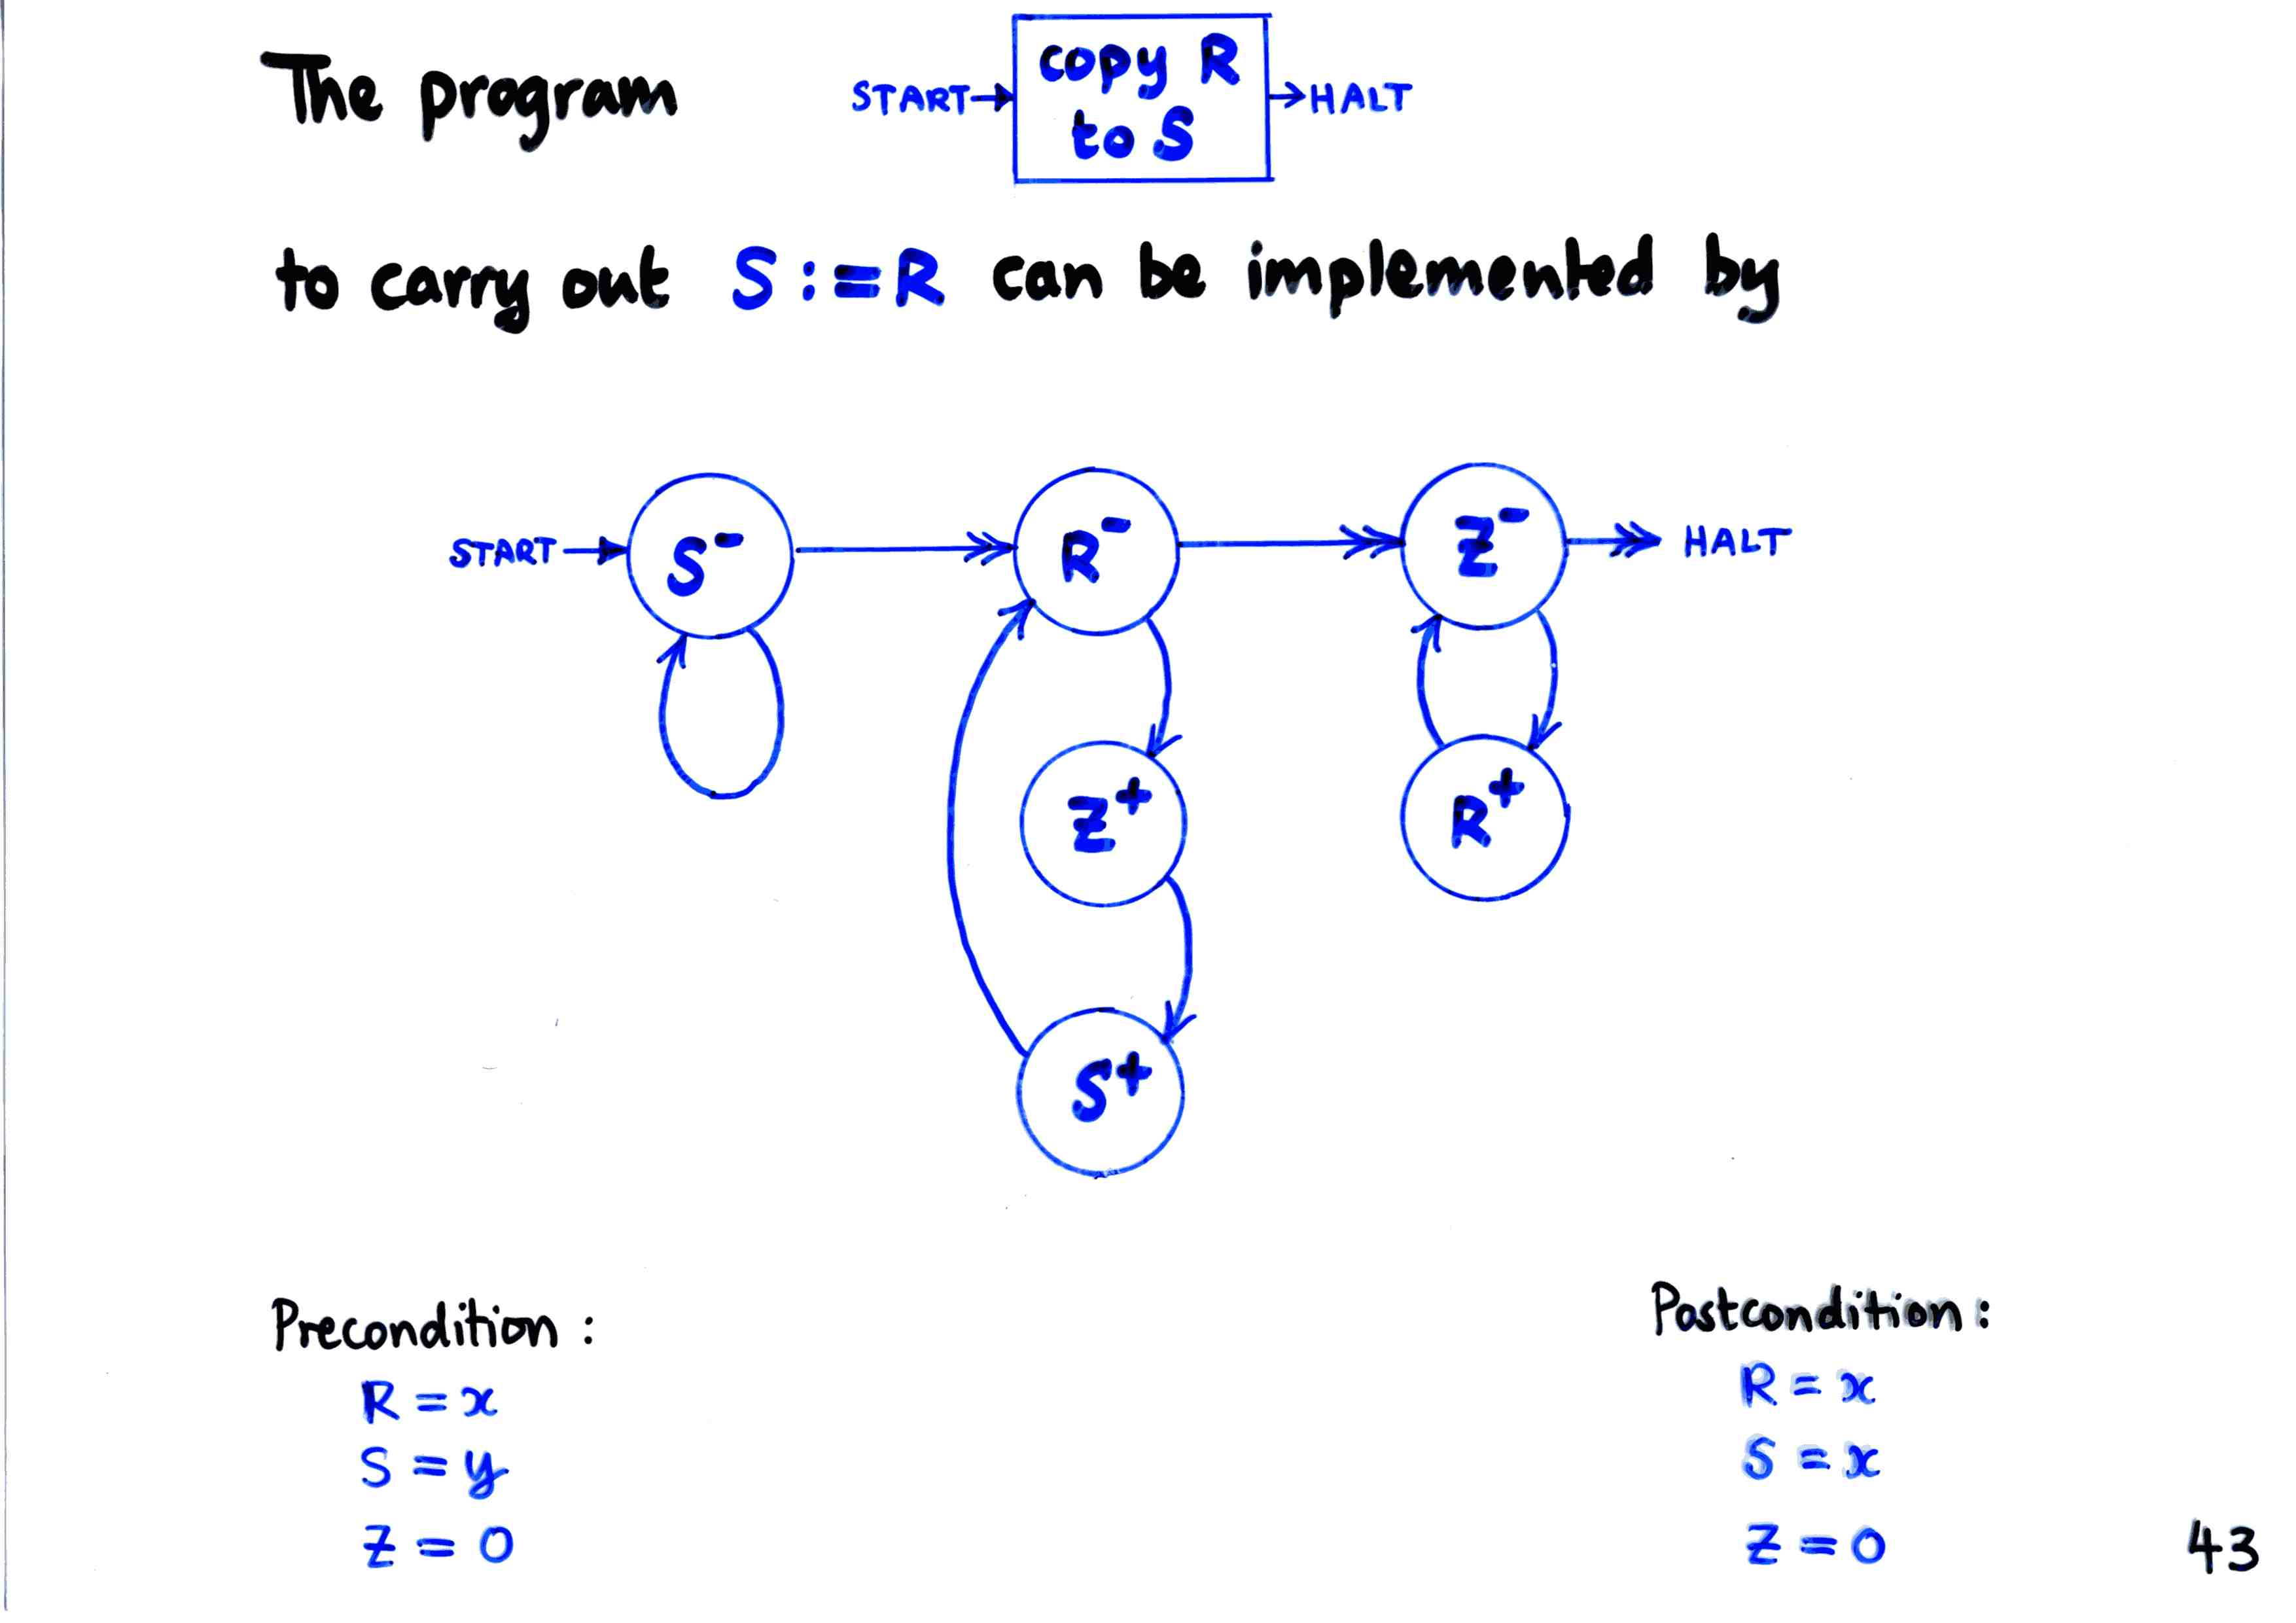 The program
START copy R HALT
to S
to carry out S:=R can be implemented by
START S⁻ R⁻ Z⁻ HALT
Z⁺ R⁺
S⁺
Precondition: Postcondition:
R = x R = x
S = y S = x
Z = 0 Z = 0
43